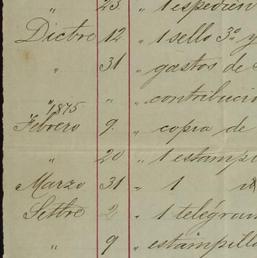 " 23 " 1 espedien
Dictre 12 " 1 sello 3º y
" 31 " gastos de
" " " contribucio
" 1875
Febrero 9. " copia de
" 20 " 1 estampi
Marzo 31 " 1 id
Setbre 2 " 1 telégram
" 9 " estampilla